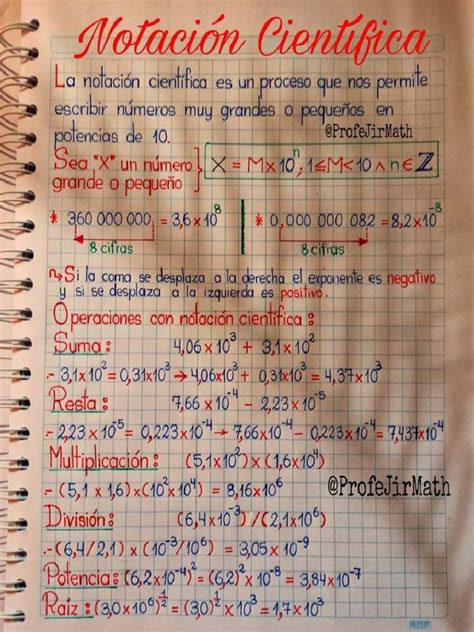 Notación Científica
La notación científica es un proceso que nos permite
escribir números muy grandes o pequeños en
potencias de 10.
@ProfeJirMath
Sea "X" un número
grande o pequeño
X = M×10ⁿ, 1≤M<10 ∧ n∈ℤ
* 360 000 000, = 3,6×10⁸
8 cifras
* 0,000 000 082 = 8,2×10⁻⁸
8 cifras
Si la coma se desplaza a la derecha el exponente es negativo
y si se desplaza a la izquierda es positivo.
Operaciones con notación científica:
Suma: 4,06×10³ + 3,1×10²
.- 3,1×10² = 0,31×10³ → 4,06×10³ + 0,31×10³ = 4,37×10³
Resta: 7,66×10⁻⁴ - 2,23×10⁻⁵
.- 2,23×10⁻⁵ = 0,223×10⁻⁴ → 7,66×10⁻⁴ - 0,223×10⁻⁴ = 7,437×10⁻⁴
Multiplicación: (5,1×10²)×(1,6×10⁴)
.- (5,1 × 1,6)×(10²×10⁴) = 8,16×10⁶
@ProfeJirMath
División: (6,4×10⁻³)/(2,1×10⁶)
.- (6,4/2,1) × (10⁻³/10⁶) = 3,05 × 10⁻⁹
Potencia: (6,2×10⁻⁴)² = (6,2)² × 10⁻⁸ = 3,84×10⁻⁷
Raíz: (3,0×10⁶)^½ = (3,0)^½ × 10³ = 1,7×10³